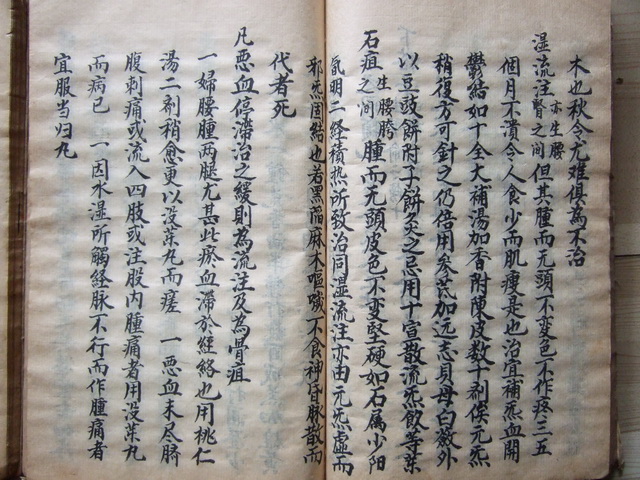 木也秋令尤难俱为不治
湿流注亦生腰肾之间但其腫而无頭不変色不作疼三五
個月不潰令人食少而肌瘦是也治宜補炁血開
鬱結如十全大補湯加香附陳皮数十剂俟元炁
稍復方可針之仍倍用参芪加远志貝母白蔹外
以豆豉餅附子餅灸之忌用十宣散流炁飲等薬
石疽生腰胯之间腫而无頭皮色不変堅硬如石属少阳
阳明二経積热所致治同湿流注亦由元炁虚而
邪炁固結也若黑陷麻木嘔噦不食神昏脉散而
代者死
凡悪血停滞治之緩則為流注及為骨疽
一婦腰腫两腿尤甚此瘀血滞於経絡也用桃仁
湯二剂稍愈更以没薬丸而瘥 一悪血未尽脐
腹刺痛或流入四肢或注股内腫痛者用没薬丸
而病已 一因水湿所觸経脉不行而作腫痛者
宜服当归丸